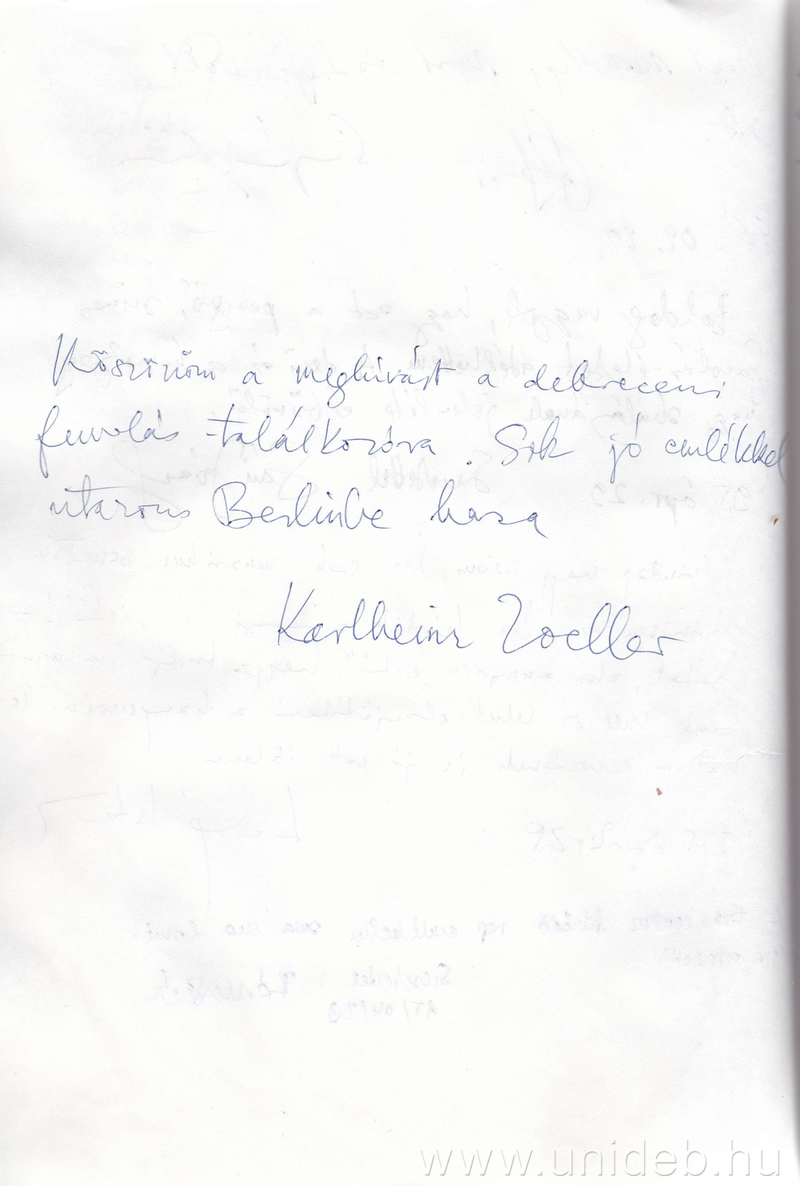 Köszönöm a meghívást a debreceni
fuvolás-találkozóra. Sok jó emlékkel
utazom Berlinbe haza
Karlheinz Zoeller
www.unideb.hu